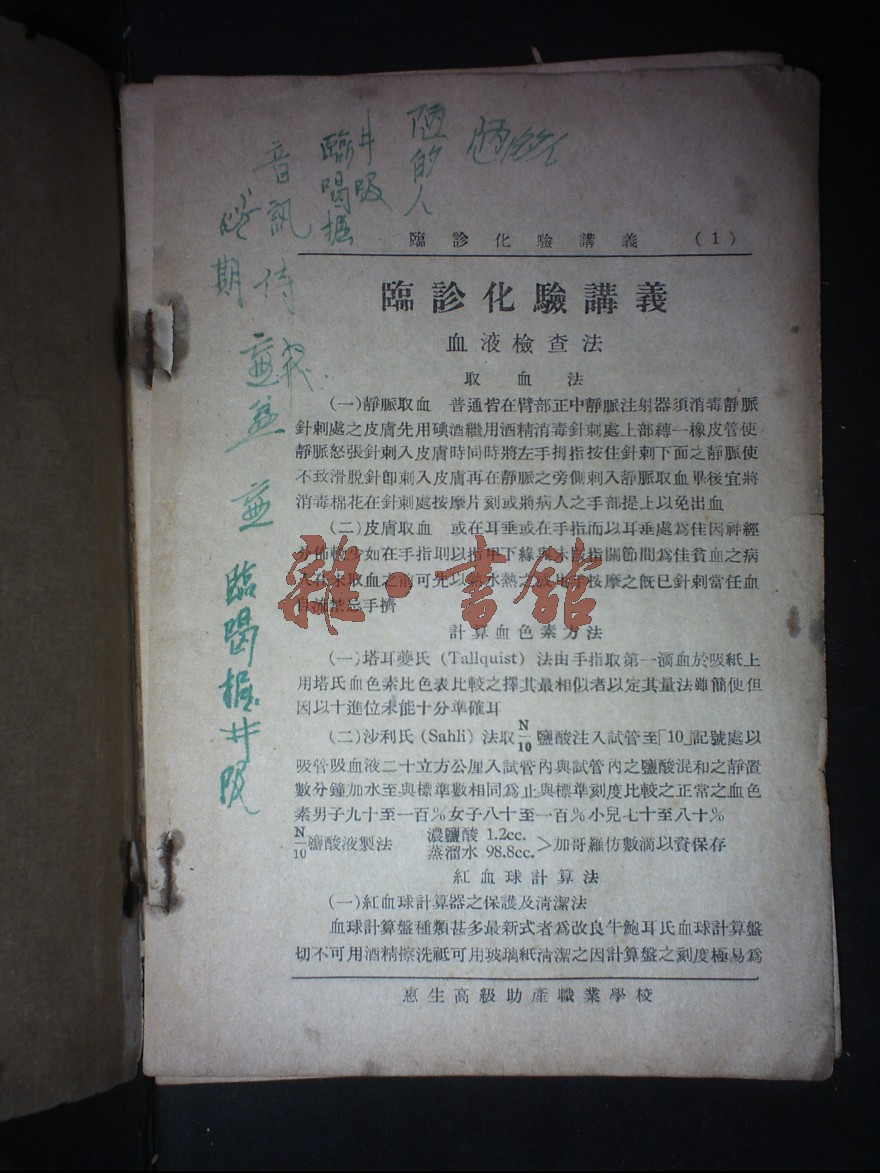 臨診化驗講義 (1)
臨診化驗講義
血液檢查法
取血法
(一)靜脈取血 普通皆在臂部正中靜脈注射器須消毒靜脈
針刺處之皮膚先用碘酒繼用酒精消毒針刺處上部縛一橡皮管使
靜脈怒張針刺入皮膚時同時將左手拇指按住針刺下面之靜脈使
不致滑脫針卽刺入皮膚再在靜脈之旁側刺入靜脈取血畢後宜將
消毒棉花在針刺處按摩片刻或將病人之手部提上以免出血
(二)皮膚取血 或在耳垂或在手指而以耳垂處爲佳因神經
分佈較少如在手指則以指甲下緣與末階指關節間爲佳貧血之病
人在未取血之前可先以熱水熱之或用手按摩之旣已針刺當任血
自流禁忌手擠
計算血色素方法
(一)塔耳夔氏(Tallquist)法由手指取第一滴血於吸紙上
用塔氏血色素比色表比較之擇其最相似者以定其量法雖簡便但
因以十進位未能十分準確耳
(二)沙利氏(Sahli)法取N/10鹽酸注入試管至「10」記號處以
吸管吸血液二十立方公厘入試管內與試管內之鹽酸混和之靜置
數分鐘加水至與標準數相同爲止與標準刻度比較之正常之血色
素男子九十至一百%女子八十至一百%小兒七十至八十%
N/10鹽酸液製法 濃鹽酸 1.2cc. 蒸溜水 98.8cc. >加哥羅仿數滴以資保存
紅血球計算法
(一)紅血球計算器之保護及清潔法
血球計算盤種類甚多最新式者爲改良牛鮑耳氏血球計算盤
切不可用酒精擦洗祗可用玻璃紙清潔之因計算盤之刻度極易爲
惠生高級助產職業學校
陋的人
井吸
臨喝掘
音訊待
期
臨喝掘井吸
雜·書館